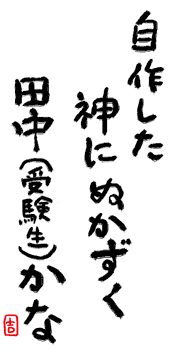 自作した
神にぬかずく
田中(受験生)かな
吉